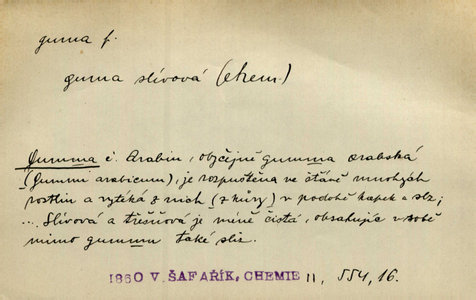 guma f.
guma slívová (chem.)
Gumma č. Arabin, obyčejně gumma arabská
(Gummi arabicum), je rozpuštěna ve šťávě mnohých
rostlin a vytéká z nich (z kůry) v podobě kapek a slz;
... Slívová a třešňová je méně čistá, obsahujíc v sobě
mimo gummu také sliz.
1860 V. ŠAFAŘÍK, CHEMIE II, 554, 16.